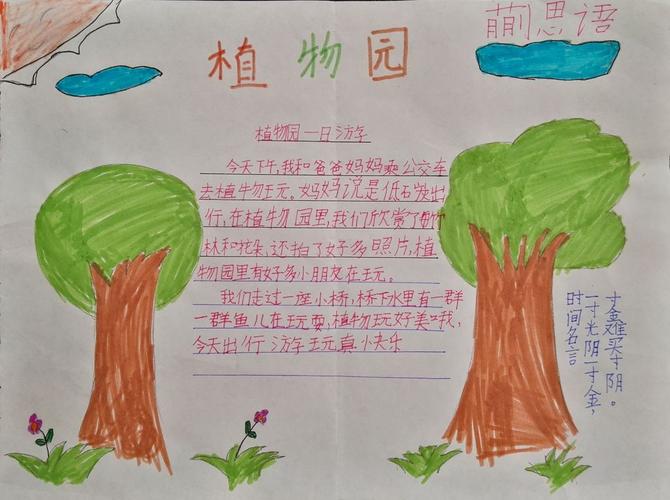 植物园
思语
植物园一日游
今天下午,我和爸爸妈妈乘公交车
去植物玩。妈妈说是低碳出
行,在植物园里,我们欣赏了
林和花朵,还拍了好多照片,植
物园里有好多小朋友在玩。
我们走过一座小桥,桥下水里有一群
一群鱼儿在玩耍,植物玩好美哦,
今天出行游玩真快乐
时间名言
一寸光阴一寸金,
寸金难买寸阴。